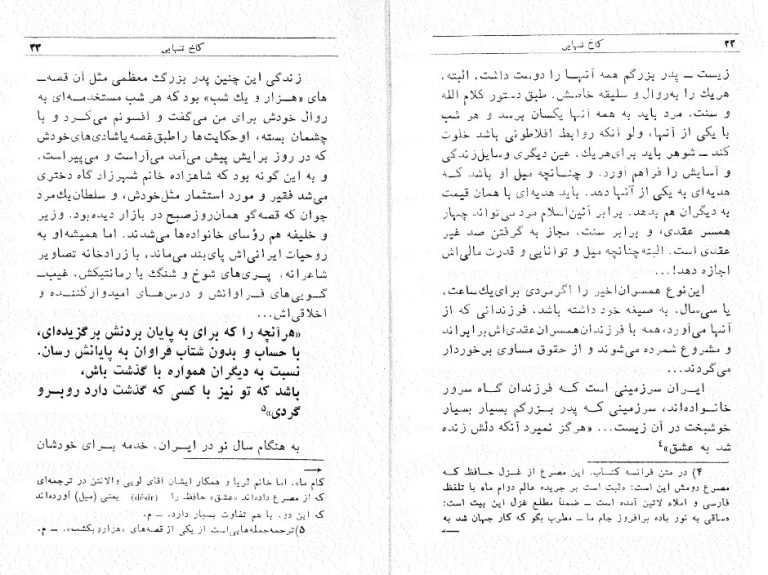 ۲۲ کاخ تنهایی
زیست ــ پدر بزرگم همه آنهـا را دوست داشت، البته،
هریك را به‌روال و سلیقه خاصش. طبق دستور کلام الله
و سنت، مرد باید به همه آنها یکسان برسد و هر شب
با یکی از آنها، ولو آنکه روابط افلاطونی باشد خلوت
کند ــ شوهر باید برای‌هریك، عین دیگری وسایل‌زندگی
و آسایش را فراهم آورد. و چنـانچه میل او باشد کـه
هدیه‌ای به یکی از آنهـا دهد، باید هدیه‌ای با همان قیمت
به دیگران هم بدهد. برابر آئین‌اسلام مرد می‌تواند چهار
همسر عقدی، و برابر سنت، مجاز به گرفتن صد غیر
عقدی است. البته‌چنانچه میل و توانایی و قدرت مالی‌اش
اجازه دهد!...
این‌نوع همسران‌اخیر را اگرمردی برای‌یك‌ساعت،
یا سی‌سال، به صیغه خود داشته باشد، فرزندانی که از
آنها می‌آورد، همه با فرزندان‌همسران عقدی‌اش‌برابرند
و مشروع شمرده می‌شوند و از حقوق مساوی برخوردار
می‌گردند...
ایـران سرزمینی است کـه فرزندان گـاه سرور
خانـواده‌اند، سرزمینی کـه پدر بـزرگم بسیار بسیار
خوشبخت در آن زیست... «هرگز نمیرد آنکه دلش زنده
شد به عشق»۴
۴) در متن فرانسه کتـاب، این مصرع از غزل حـافظ کـه
مصرع دومش این است: «ثبت است بر جریدهٔ عالم دوام ما» با تلفظ
فارسی و املاء لاتین آمده است ــ ضمناً مطلع غزل این بیت است:
«ساقی به نور باده برافروز جام ما ــ مطرب بگو که کار جهان شد به
کاخ تنهایی ۲۳
زندگی این چنین پدر بزرگ معظمی مثل آن قصه‌ــ
های «هـزار و یك شب» بود که هر شب مستخدمه‌ای به
روال خودش برای من می‌گفت و افسونم می‌کـرد و با
چشمان بسته، اوحکایت‌ها راطبق‌غصه یاشادی‌های‌خودش
که در روز برایش پیش می‌آمد می‌آراست و می‌پیراست.
و به این گونه بود که شاهزاده خانم شهرزاد گاه دختری
می‌شد فقیر و مورد استثمار مثل‌خودش، و سلطان‌یك‌مرد
جوان که قصه‌گو همان‌روزصبح در بازار دیده‌بود. وزیر
و خلیفه هم رؤسای خانواده‌ها می‌شدند. اما همیشه‌او به
روحیات ایرانی‌اش پای‌بند می‌ماند، با زرادخانه تصاویر
شاعرانه، پـری‌های شوخ و شنگ یا رمانتیکش. غیب‌ــ
گـویی‌های فـراوانش و درس‌هـای امیدوارکننده و
اخلاقی‌اش...
«هرآنچه را که برای به پایان بردنش برگزیده‌ای،
با حساب و بدون شتاب فراوان به پایانش رسان.
نسبت به دیگران همواره با گذشت باش،
باشد که تو نیز با کسی که گذشت دارد روبـرو
گردی»۵
به هنگام سال نو در ایـران، خدمه بـرای خودشان
کام ما». اما خانم ثریا و همکار ایشان آقای لویی والانتن در ترجمه‌ای
که از مصرع داده‌اند «عشق» حافظ را (désir) یعنی (میل) آورده‌اند
که این دو، با هم تفاوت بسیار دارد. ــ م.
۵)ترجمه‌جمله‌هایی‌است از یکی از قصه‌های «هزارویکشب». ــ م.